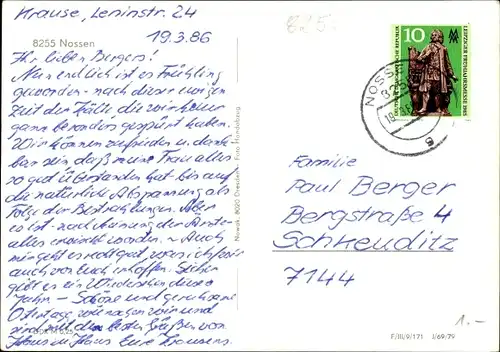 Krause, Leninstr. 24
19.3.86
8255 Nossen
Ihr lieben Bergers!
Nun endlich ist es Frühling
geworden - nach dieser ewigen
Zeit der Kälte die wir heuer
ganz besonders gespürt haben.
Wir können zufrieden u. dank-
bar sein, daß meine Frau alles
so gut überstanden hat - bis auf
die natürliche Abspannung als
Folge der Bestrahlungen. Aber
es ist - nach Meinung der Ärzte -
alles erreicht worden. - Auch
mir geht es recht gut, was ich für
auch von Euch erhoffen.
gibt es ein Wiedersehen dieses
Jahr - Schöne und geruhsame
Ostertage wünschen wir und
sind mit den besten Grüßen von
Haus zu Haus Eure Krausens
825
10
DEUTSCHE DEMOKRATISCHE REPUBLIK
LEIPZIGER FRÜHJAHRSMESSE 1985
NOSSEN
Familie
Paul Berger
Bergstraße 4
Schkeuditz
7144
1.-
F/III/9/171 J/69/79